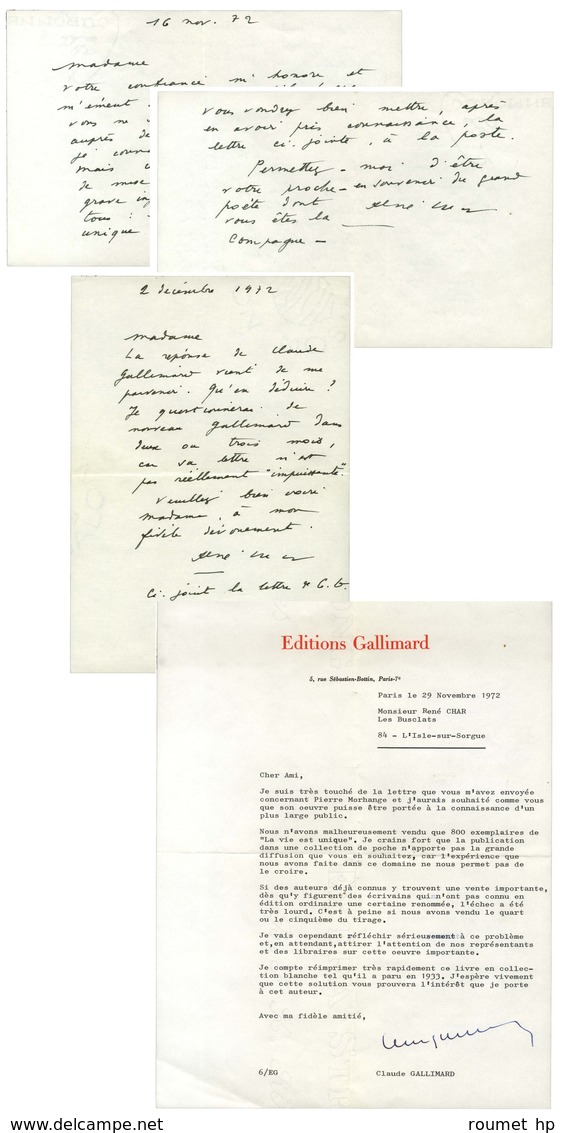 16 nov. 72
Madame
votre confiance m'honore et
m'émeut.
vous ne
auprès de
je conn
mais
de mus
grave
tous :
unique
vous voudrez bien mettre, après
en avoir pris connaissance, la
lettre ci-jointe, à la poste.
Permettez-moi d'être
votre proche - en souvenir du grand
poète dont
vous êtes la
René Char
Compagne -
2 décembre 1972
Madame
La réponse de Claude
Gallimard vient de me
parvenir. Qu'en déduire ?
Je questionnerai de
nouveau Gallimard dans
deux ou trois mois,
car sa lettre n'est
pas réellement "impuissante".
Veuillez bien croire
Madame, à mon
fidèle dévouement.
René Char
Ci-joint la lettre de C. G.
Editions Gallimard
5, rue Sébastien-Bottin, Paris-7e
Paris le 29 Novembre 1972
Monsieur René CHAR
Les Busclats
84 - L'Isle-sur-Sorgue
Cher Ami,
Je suis très touché de la lettre que vous m'avez envoyée
concernant Pierre Morhange et j'aurais souhaité comme vous
que son oeuvre puisse être portée à la connaissance d'un
plus large public.
Nous n'avons malheureusement vendu que 800 exemplaires de
"La vie est unique". Je crains fort que la publication
dans une collection de poche n'apporte pas la grande
diffusion que vous en souhaitez, car l'expérience que
nous avons faite dans ce domaine ne nous permet pas de
le croire.
Si des auteurs déjà connus y trouvent une vente importante,
dès qu'y figurent des écrivains qui n'ont pas connu en
édition ordinaire une certaine renommée, l'échec a été
très lourd. C'est à peine si nous avons vendu le quart
ou le cinquième du tirage.
Je vais cependant réfléchir sérieusement à ce problème
et, en attendant, attirer l'attention de nos représentants
et des libraires sur cette oeuvre importante.
Je compte réimprimer très rapidement ce livre en collec-
tion blanche tel qu'il a paru en 1933. J'espère vivement
que cette solution vous prouvera l'intérêt que je porte
à cet auteur.
Avec ma fidèle amitié,
6/EG
Claude GALLIMARD
roumet hp